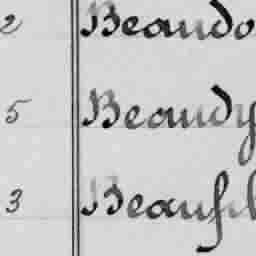 2 Beaudo
5 Beaudy
3 Beaufil